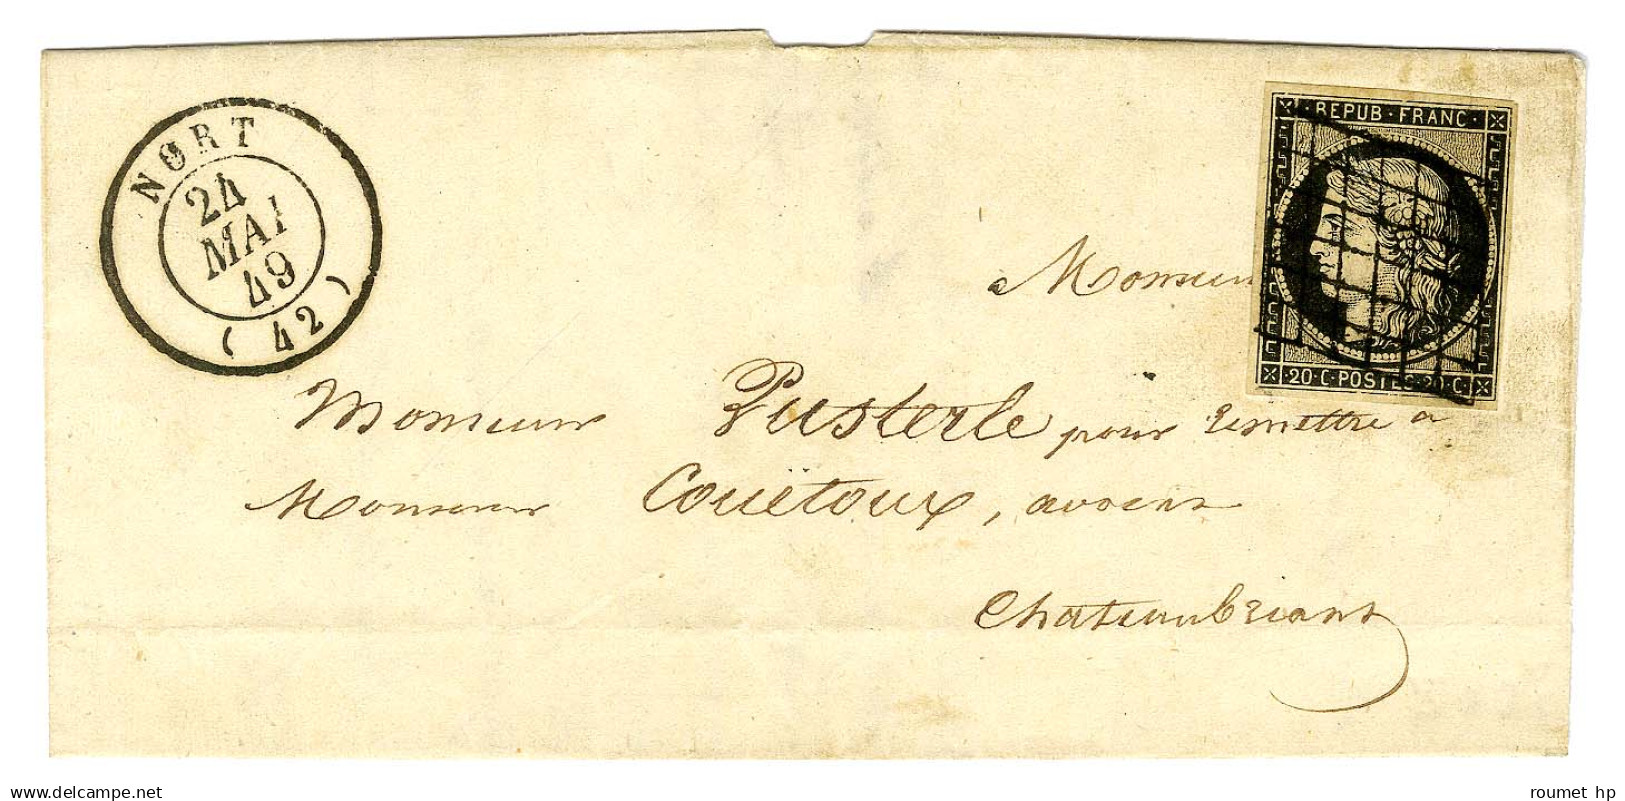 NORT
24
MAI
49
( 42 )
REPUB · FRANC ·
· 20 · C · POSTES · 20 · C ·
a Monsieur
Monsieur Pusterle pour remettre a
Monsieur Couëtoux, avocat
Chateaubriant
delcampe.net
roumet hp